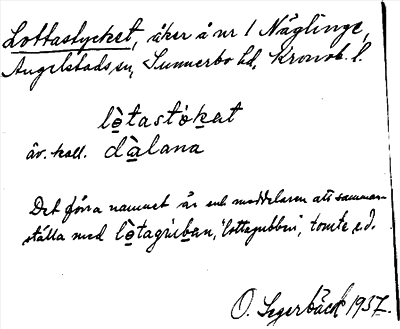 Lottastycket, åker å nr 1 Näglinge,
Angelstads sn, Sunnerbo hd, Kronob. l.
lètastókat
äv. kall. dàlana
Det förra namnet är enl meddelaren att samman-
ställa med lètagúban, 'lottagubben', tomte e.d.
O. Segerbäck 1937.